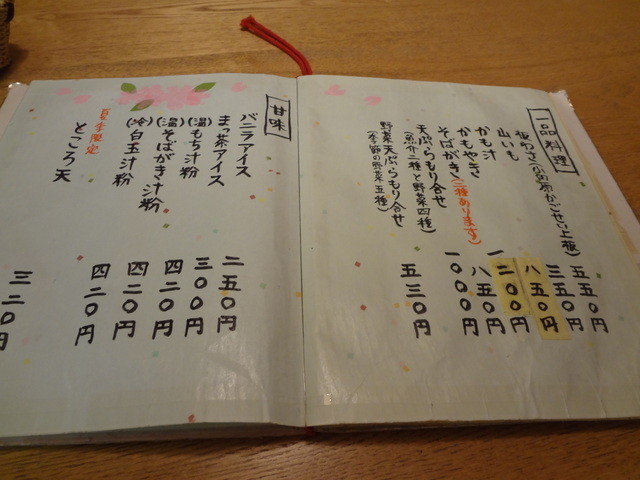 一品料理
板わさ(小田原かごせい上板) 五五〇円
山いも 三五〇円
かも汁 八五〇円
かもやき 一二〇〇円
そばがき(二種あります) 八五〇円
天ぷらもり合せ 一〇〇〇円
(魚介二種と野菜四種)
野菜天ぷらもり合せ 五三〇円
(季節の野菜五種)
甘味
バニラアイス 二五〇円
まっ茶アイス 三〇〇円
(温)もち汁粉 四二〇円
(温)そばがき汁粉 四二〇円
(冷)白玉汁粉 四二〇円
夏季限定
ところ天 三二〇円